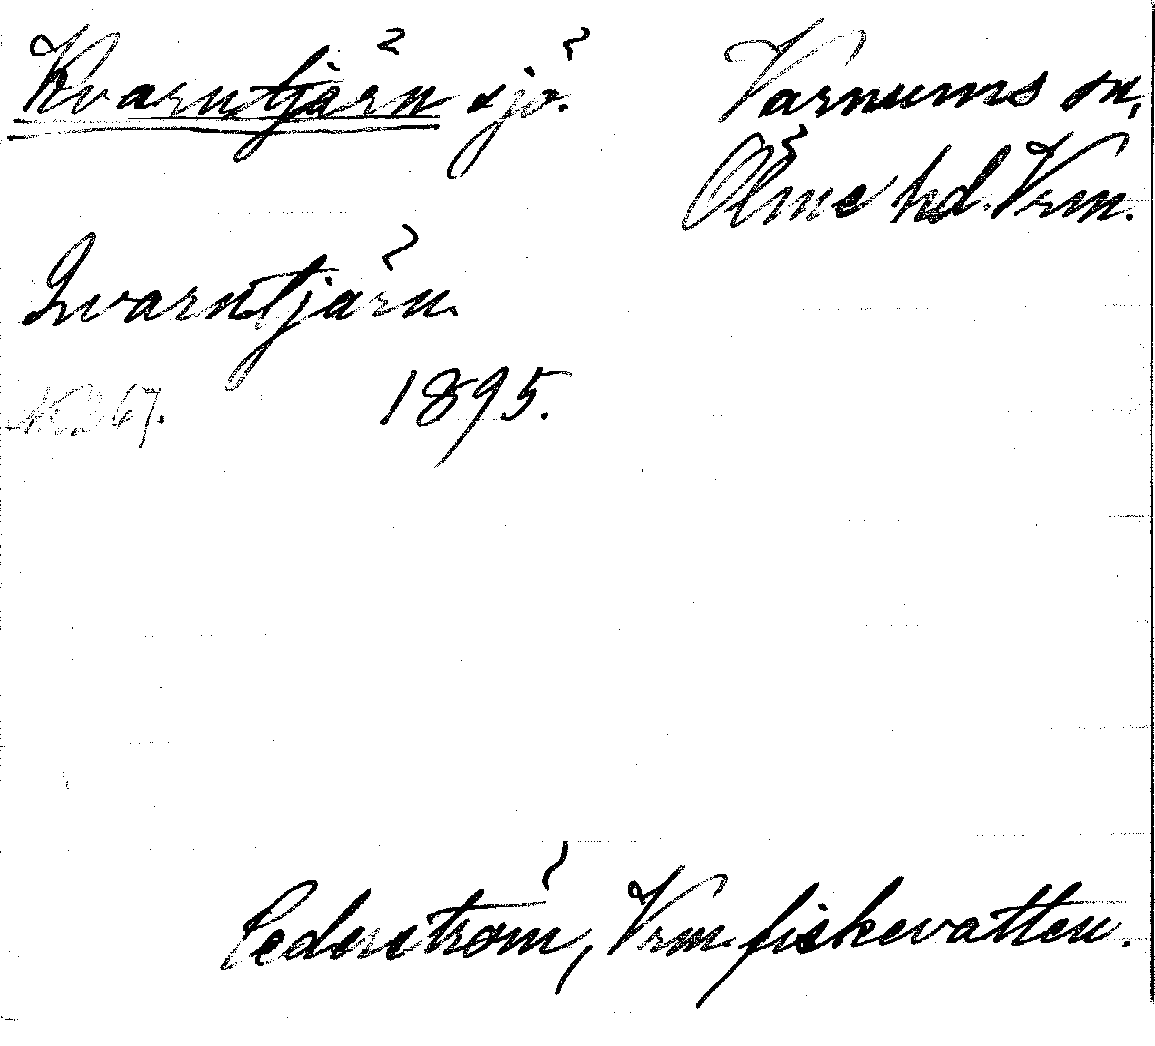 Kvarntjärn sjö. Varnums sn,
Ölme hd. Vrm.
Qvarntjärn.
1895.
Cederström, Vrm fiskevatten.